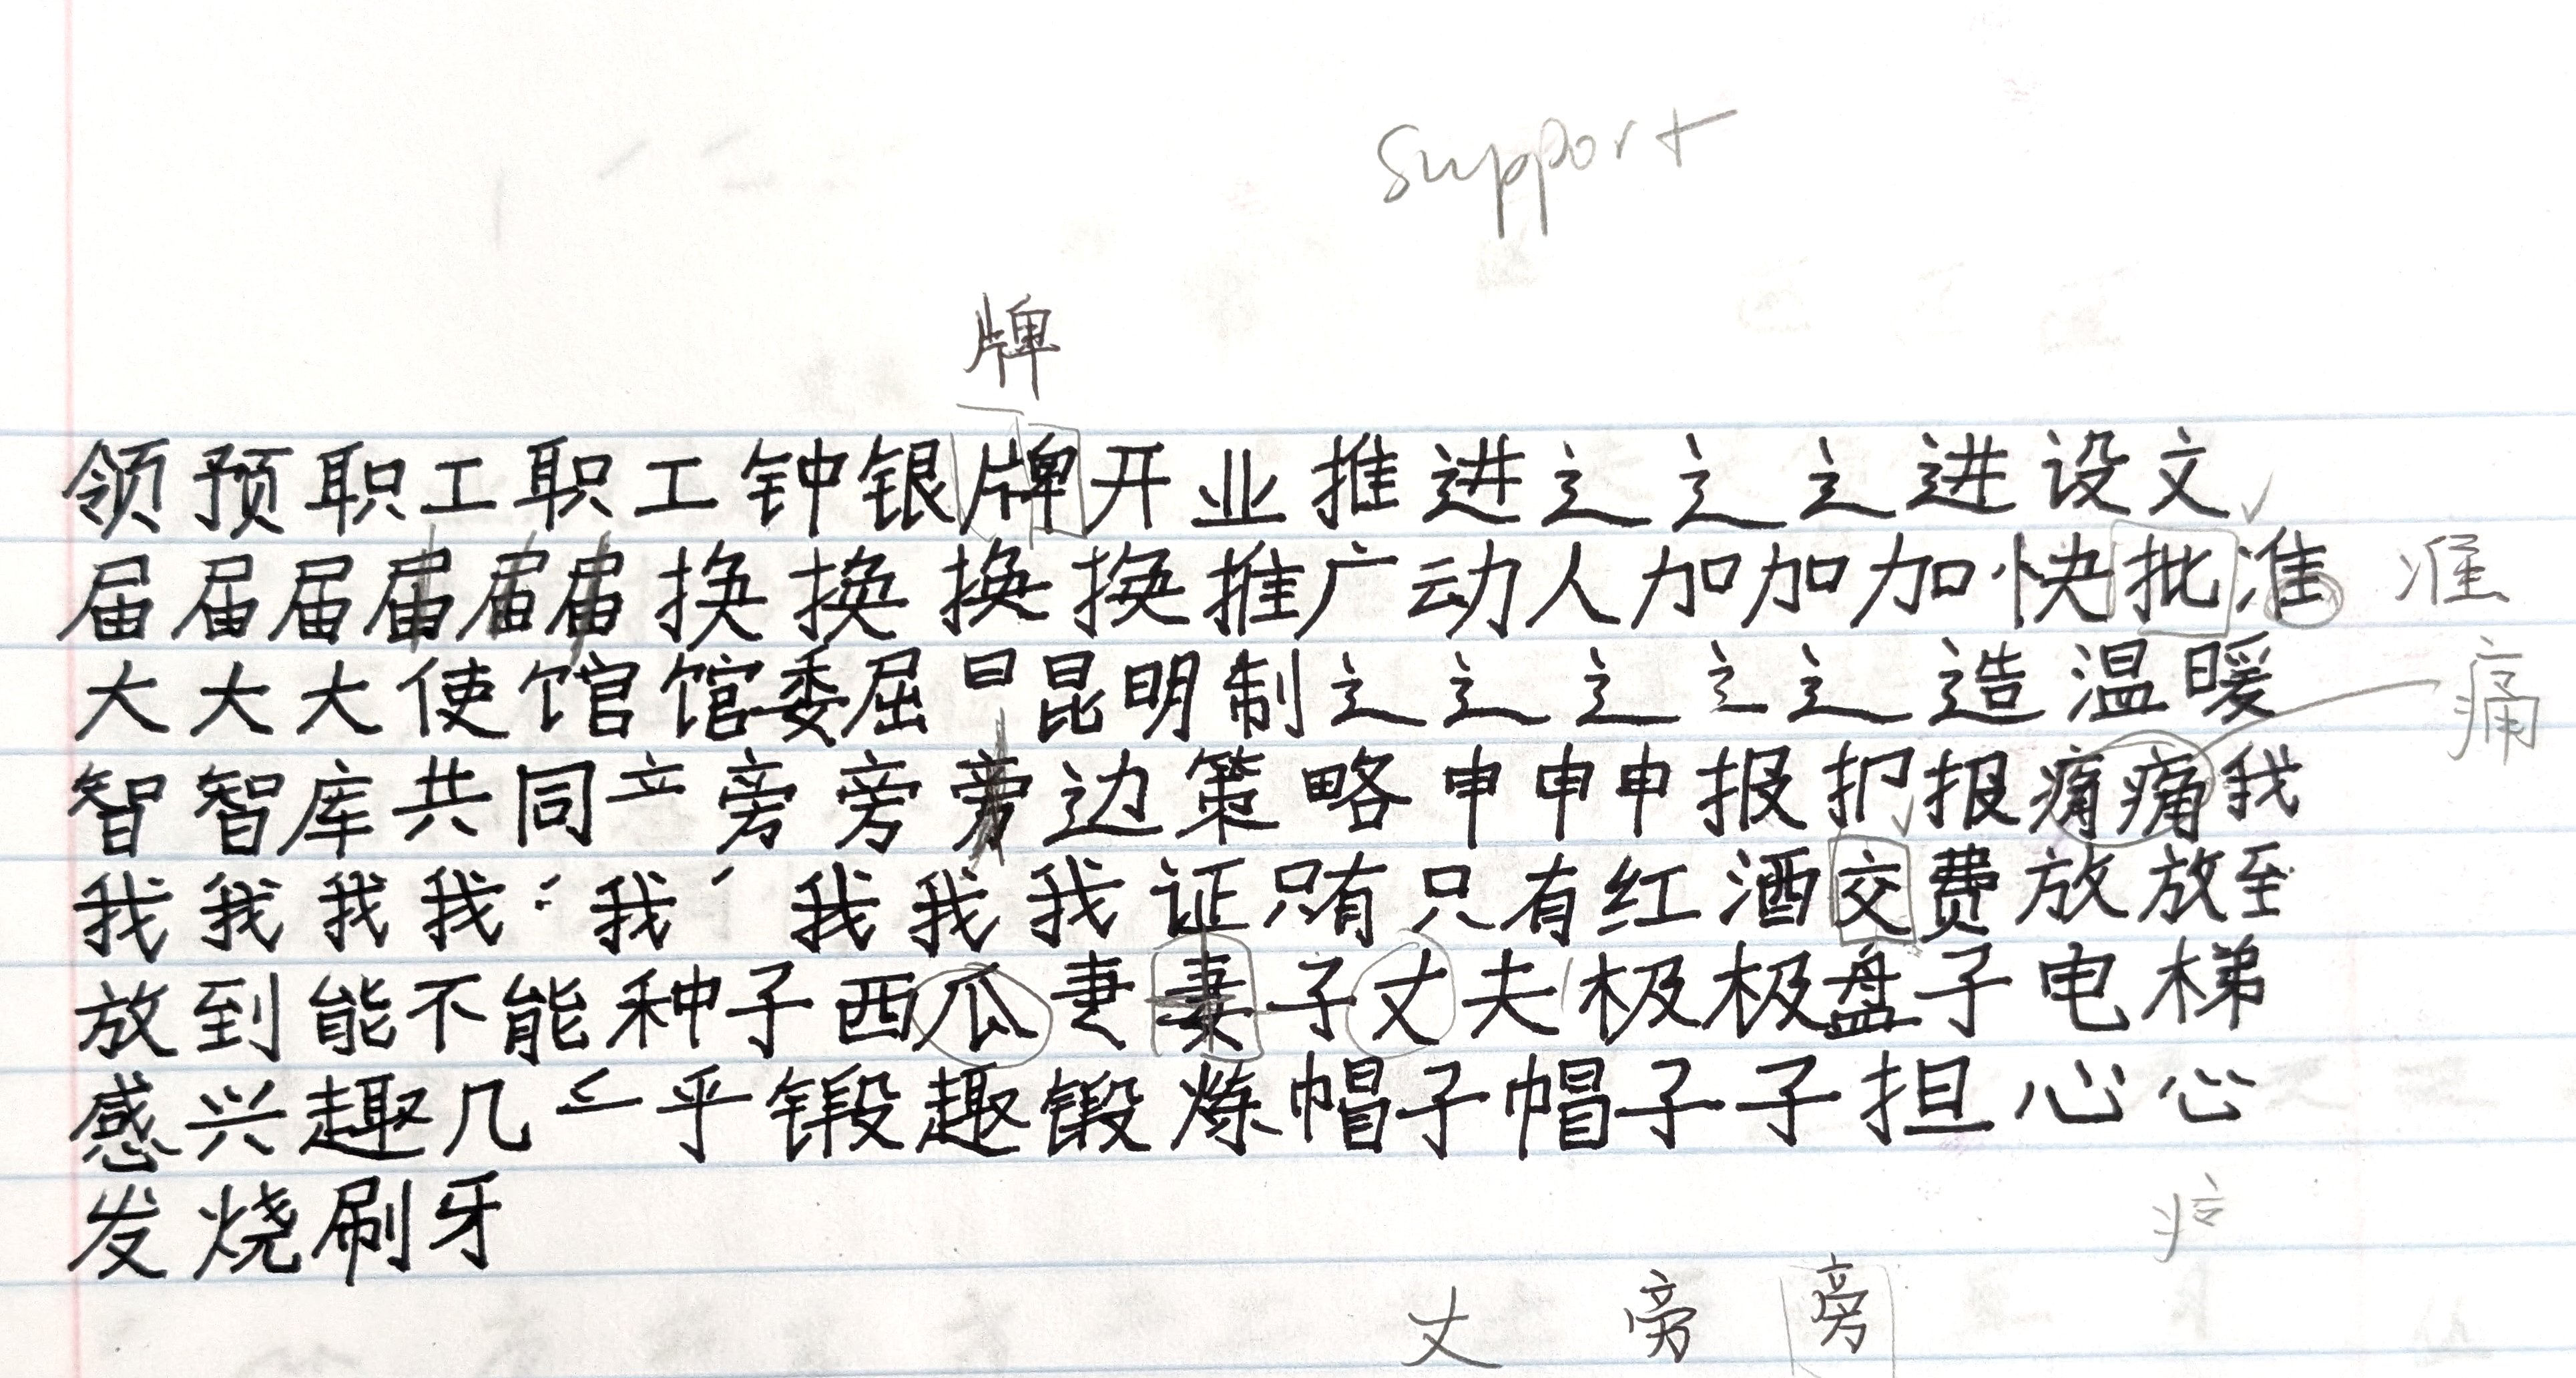 support
牌
领预职工职工钟银牌开业推进辶辶辶进设文
届届届届届届换换换换推广动人加加加快批准 准
大大大使馆馆委屈日昆明制辶辶辶辶辶造温暖
痛
智智库共同立旁旁旁边策略申申申报扪报痛痛我
我我我我我我我我证只有只有红酒交费放放至
放到能不能种子西瓜妻妻子丈夫极极盘子电梯
感兴趣几乎锻趣锻炼帽子帽子子担心心
发烧刷牙
丈 旁 旁